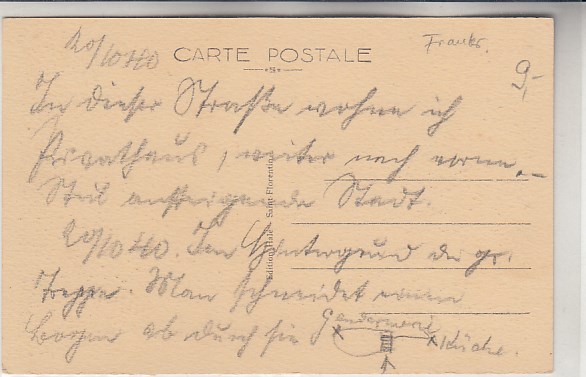 20/10 40
CARTE POSTALE
Frankr.
9,-
In dieser Straße wohne ich
Privathaus, weiter nach vorne.-
Steil aufsteigende Stadt.
20/10 40. Im Hintergrund die gr.
Treppe. Man schneidet einen
Bogen ab durch sie
Gendarmerie
Küche.
Saint-Florentin